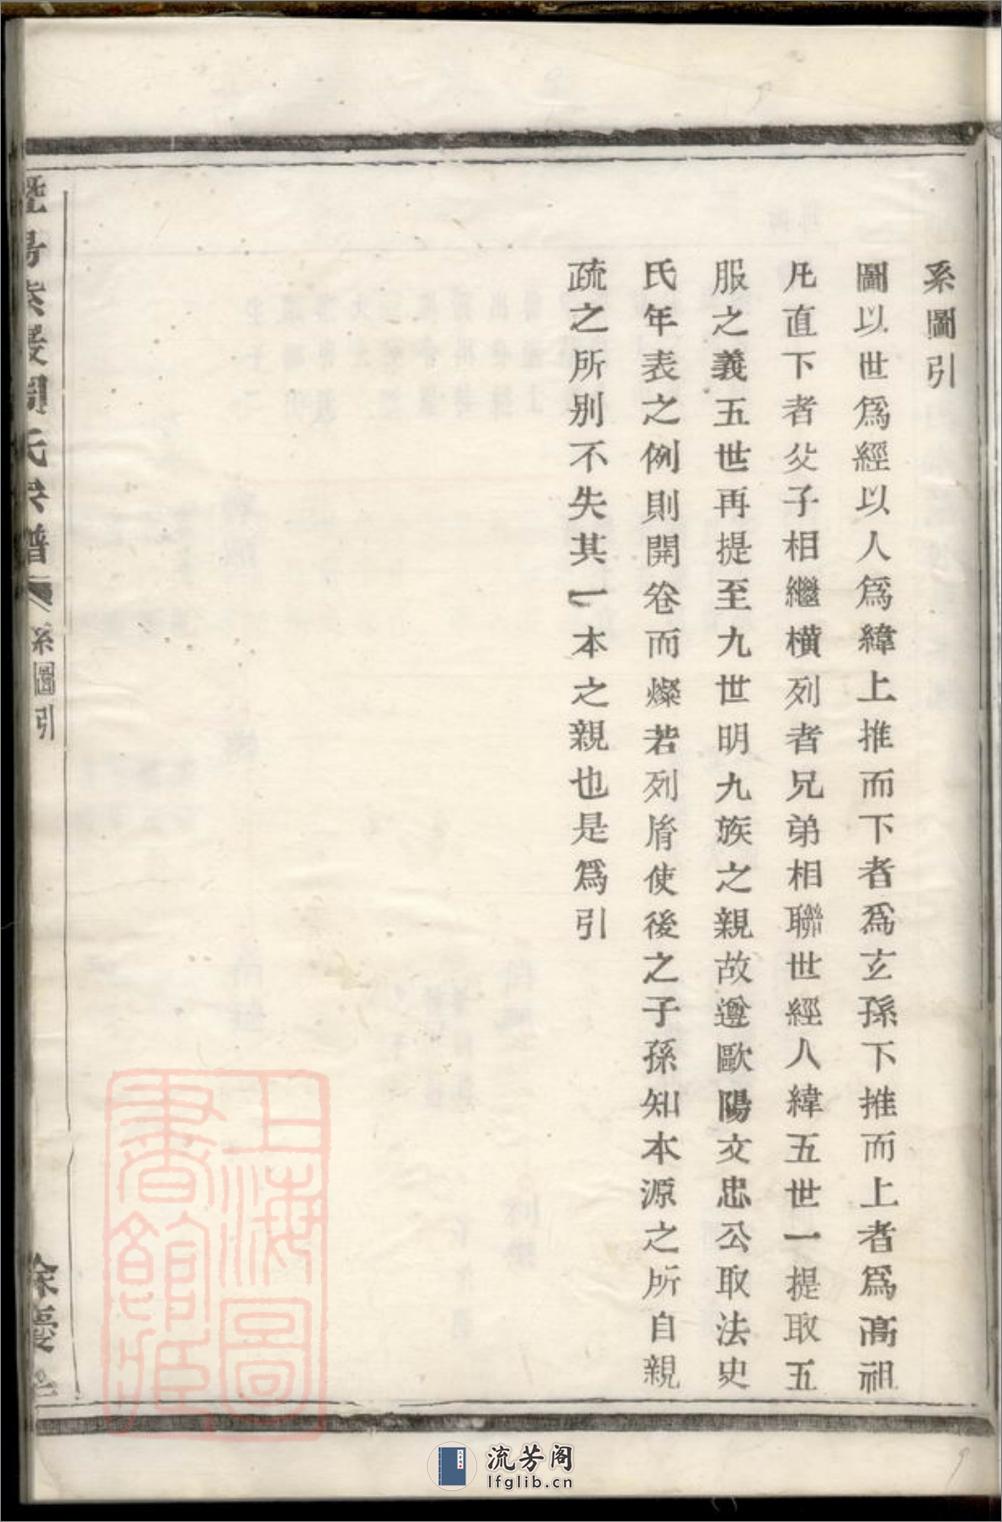 系圖引
圖以世爲經以人爲緯上推而下者爲玄孫下推而上者爲高祖
凡直下者父子相繼橫列者兄弟相聯世經人緯五世一提取五
服之義五世再提至九世明九族之親故遵歐陽文忠公取法史
氏年表之例則開卷而燦若列眉使後之子孫知本源之所自親
疏之所別不失其一本之親也是爲引
暨陽紫巖周氏宗譜
系圖引
餘慶堂
上海圖
書館藏
流芳阁
lfglib.cn